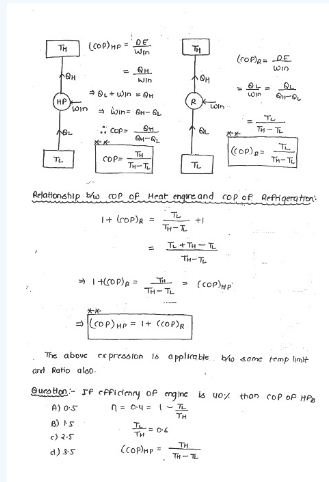 TH
(COP)HP = DE / Win
= QH / Win
⇒ QL + Win = QH
⇒ Win = QH - QL
∴ COP = QH / QH-QL
**
COP = TH / TH-TL
QH
HP
Win
QL
TL
TH
QH
R
Win
QL
TL
(COP)R = DE / Win
= QL / Win = QL / QH-QL
= TL / TH-TL
**
(COP)R = TL / TH-TL
Relationship b/w COP of Heat engine and COP of Refrigeration:-
1 + (COP)R = TL / TH-TL + 1
= TL + TH - TL / TH-TL
⇒ 1+(COP)R = TH / TH-TL = (COP)HP
**
⇒ (COP)HP = 1 + (COP)R
The above expression is applicable b/w same temp limit
and Ratio also.
Question:- If efficiency of engine is 40% than COP of HP is
A) 0.5
η = 0.4 = 1 - TL / TH
B) 1.5
TL / TH = 0.6
c) 2.5
d) 3.5
(COP)HP = TH / TH-TL